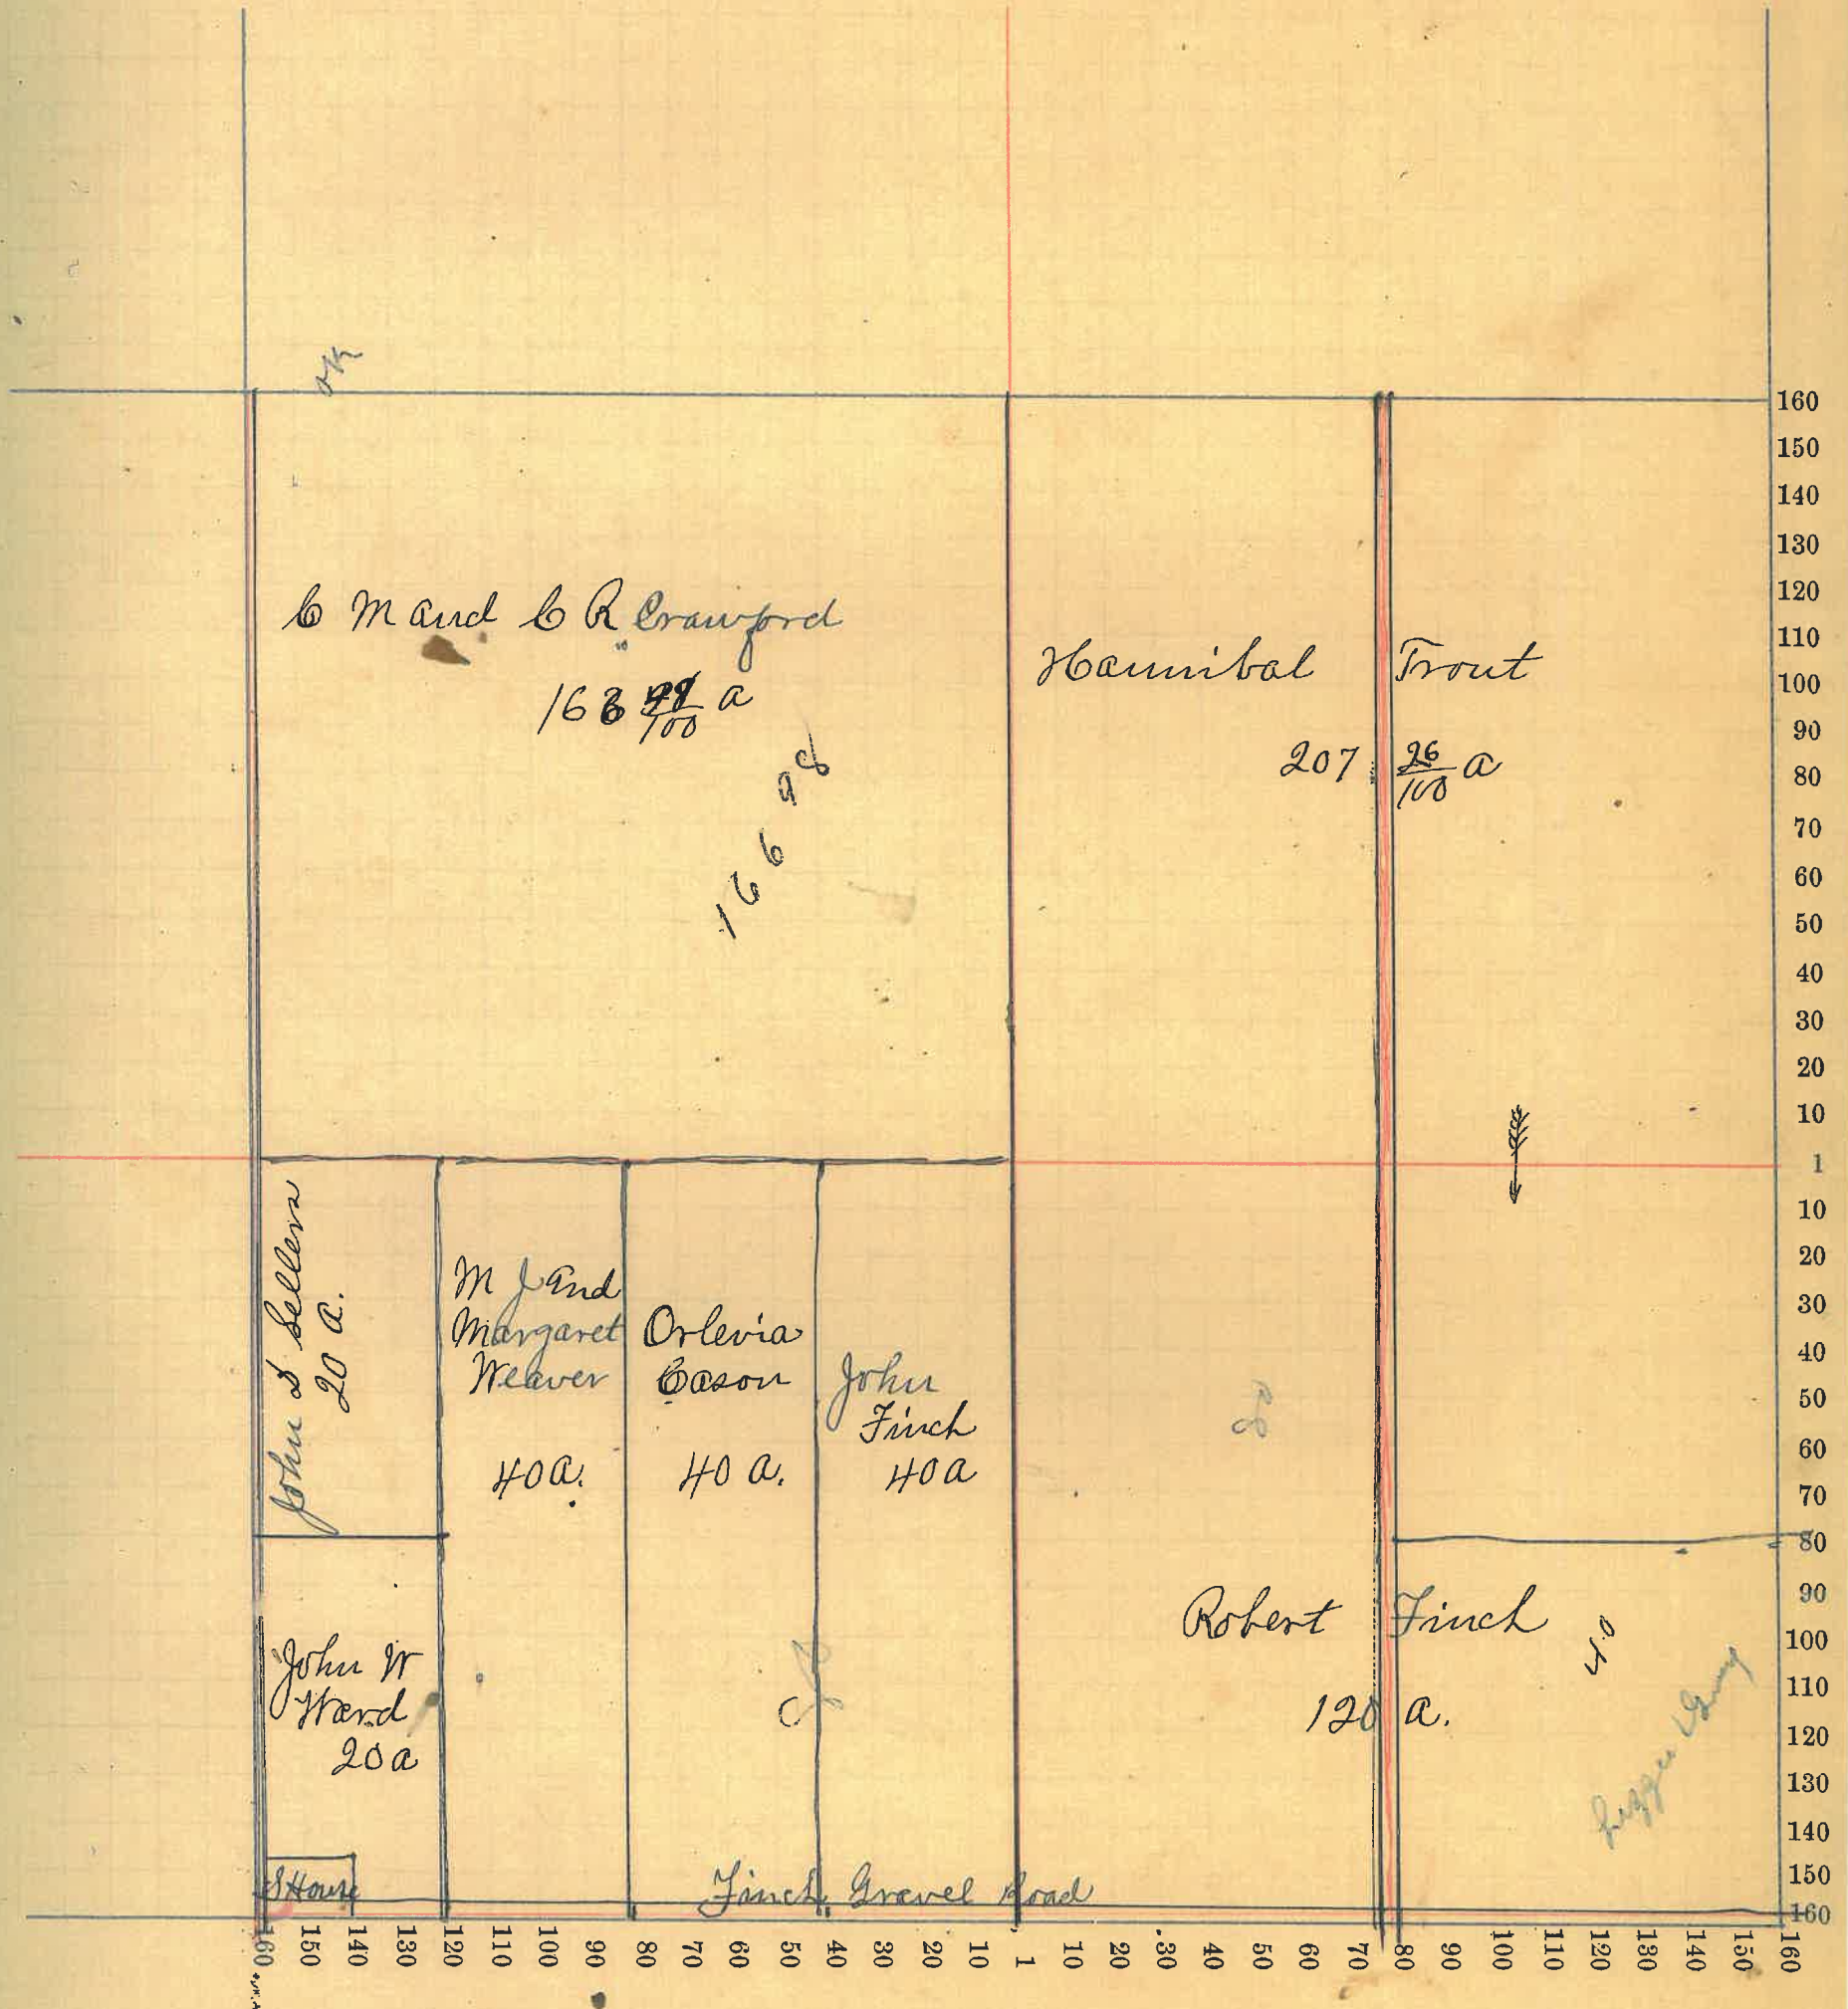 OK
C M and C R Crawford
166 98/100 a
166 98
Hannibal Trout
207 26/100 a
John S Sellers
20 a.
M J and
Margaret
Weaver
40 a.
Orlevia
Cason
40 a.
John
Finch
40 a
80
Robert Finch
120 a.
40
John W
Ward
20 a
S House
Finch Gravel Road
160
150
140
130
120
110
100
90
80
70
60
50
40
30
20
10
1
10
20
30
40
50
60
70
80
90
100
110
120
130
140
150
160
160 150 140 130 120 110 100 90 80 70 60 50 40 30 20 10 1 10 20 30 40 50 60 70 80 90 100 110 120 130 140 150 160